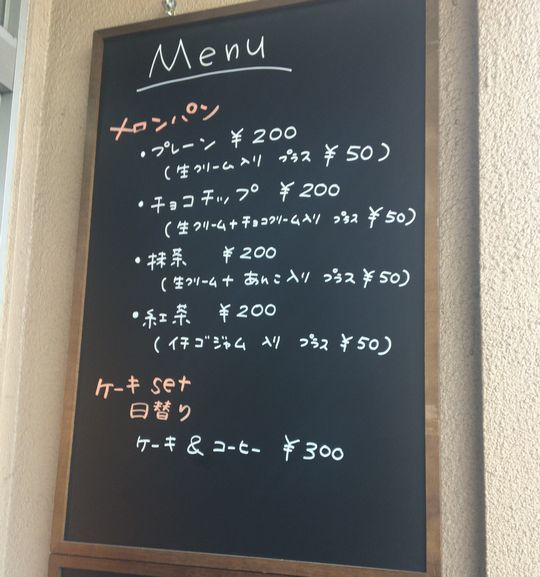 Menu
メロンパン
・プレーン ￥200
(生クリーム入り プラス ￥50)
・チョコチップ ￥200
(生クリーム+チョコクリーム入り プラス ￥50)
・抹茶 ￥200
(生クリーム+ あんこ入り プラス ￥50)
・紅茶 ￥200
(イチゴジャム 入り プラス ￥50)
ケーキ set
日替り
ケーキ & コーヒー ￥300